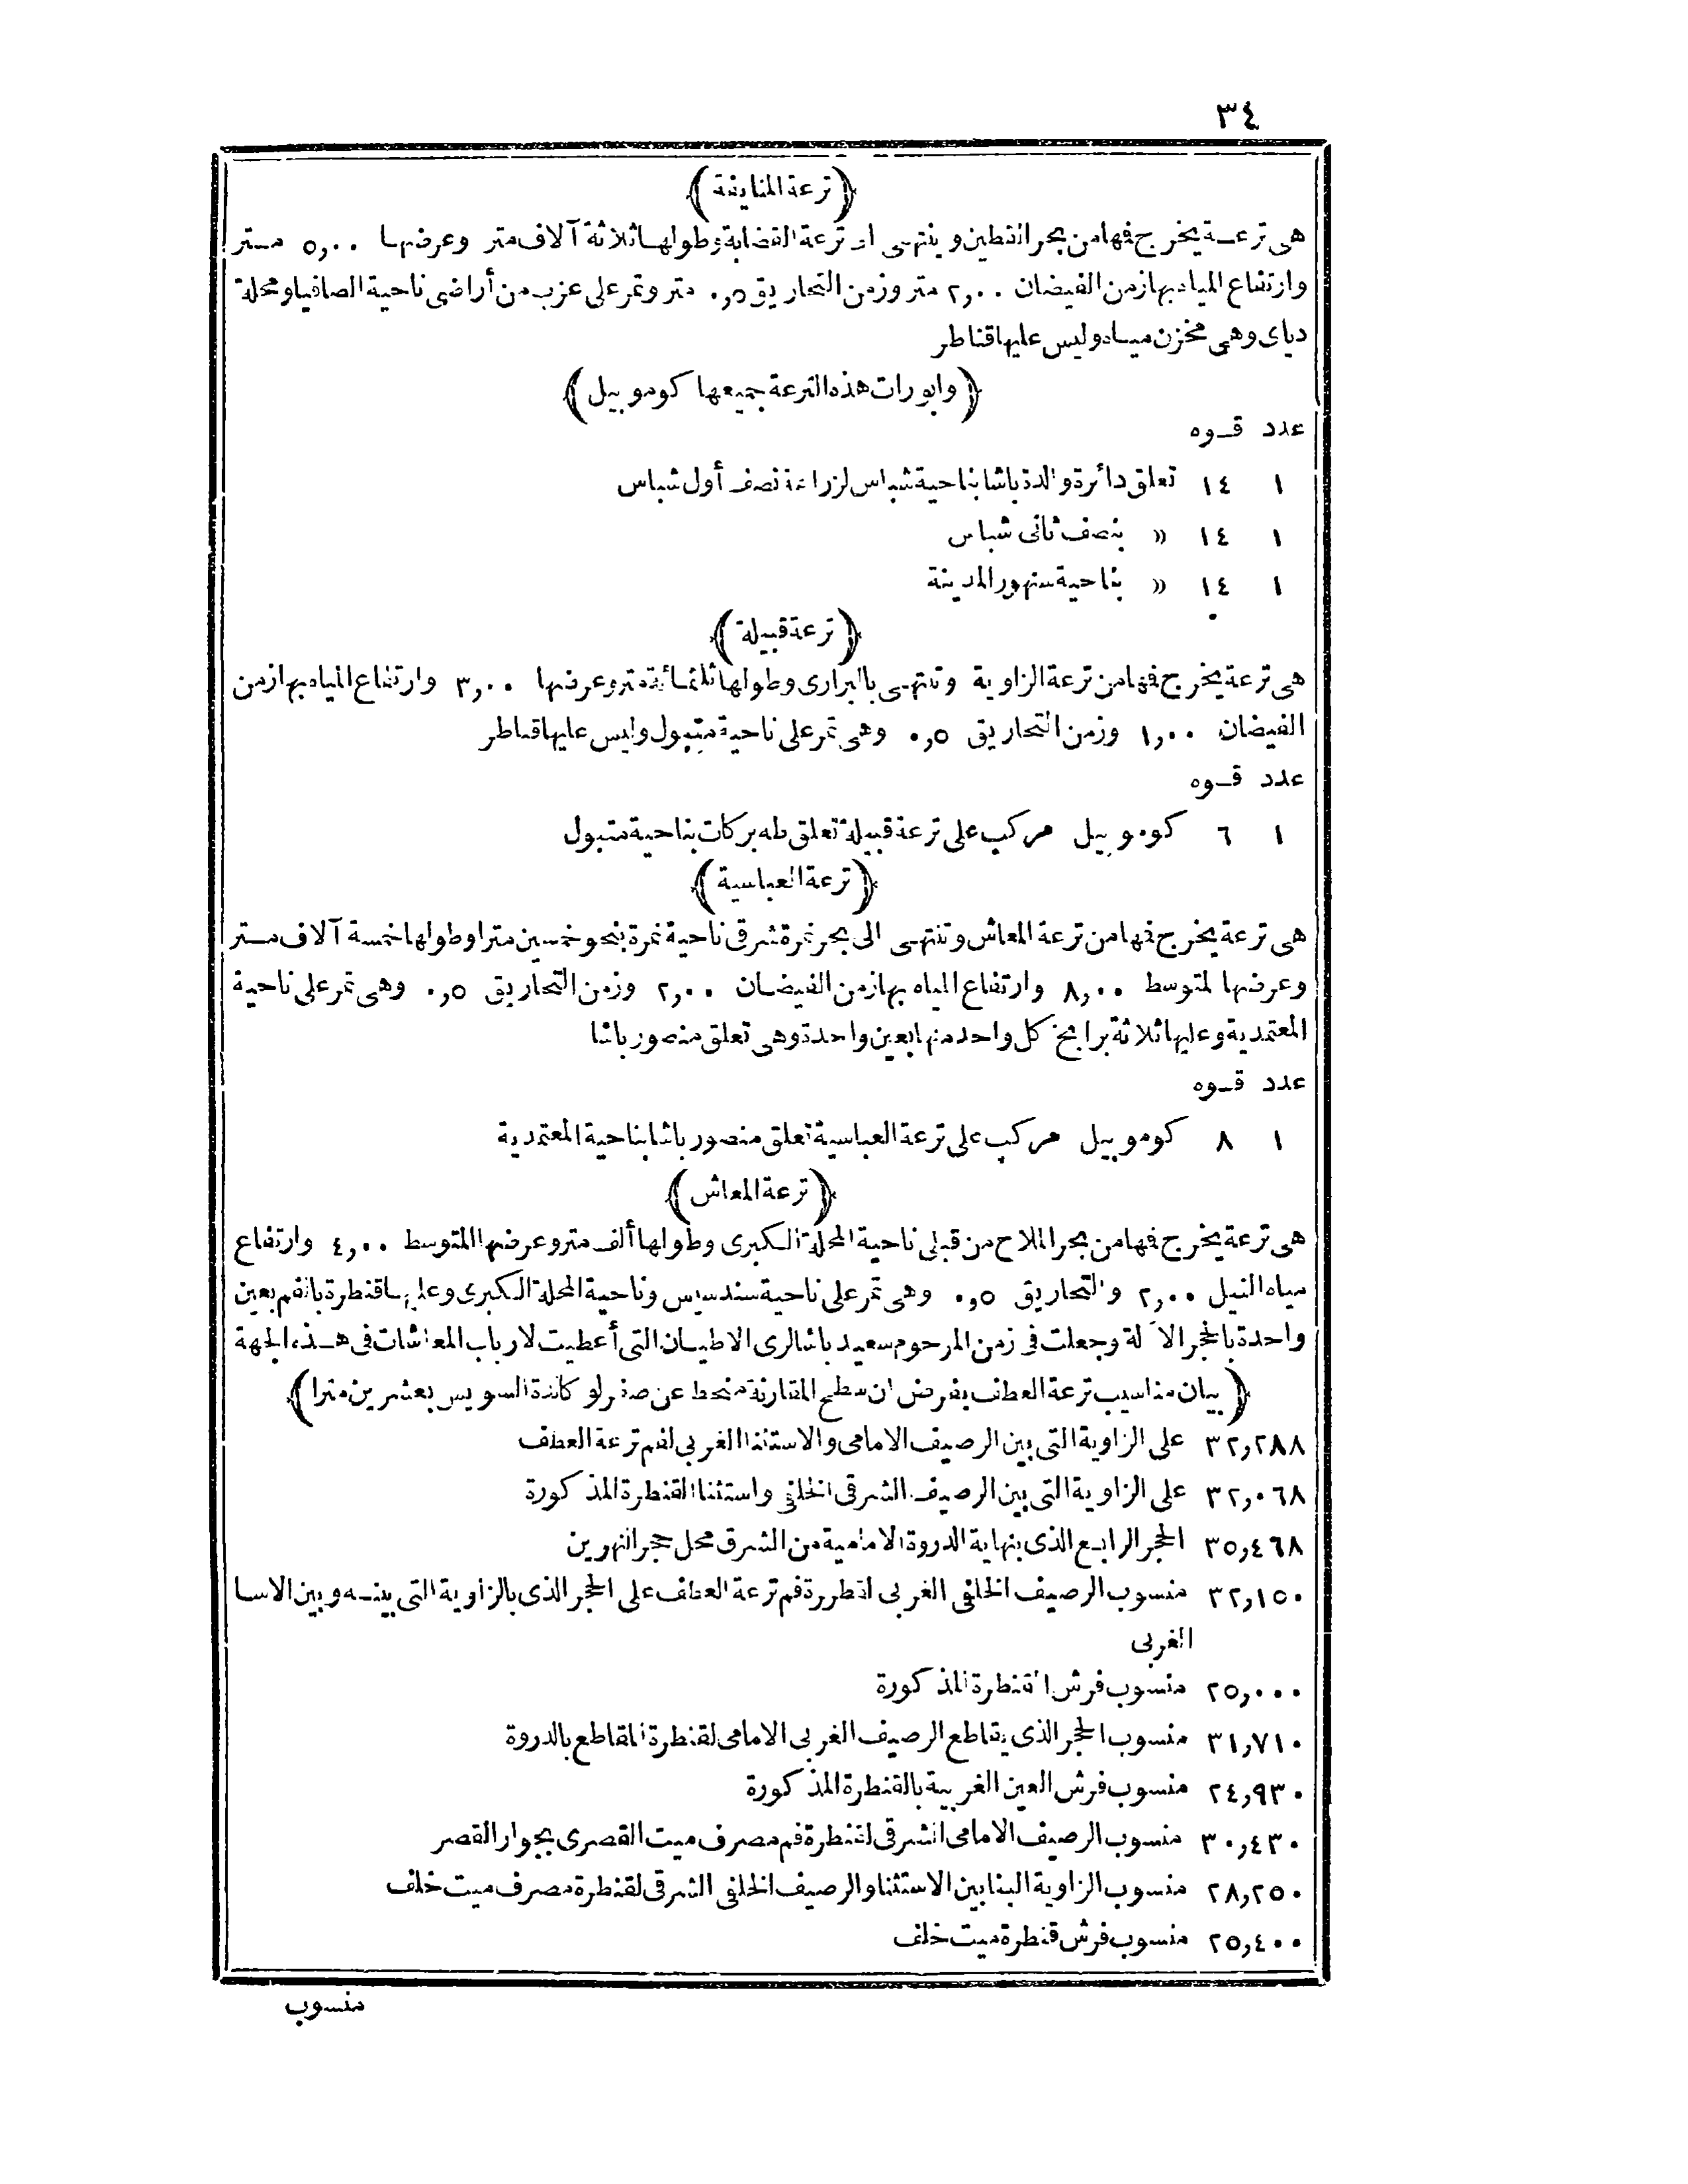 ٣٤
﴿ترعة المنايفة﴾
هى ترعـة يخرج فمها من بحر القطين وينتهى الى ترعة القضابة وطولها ثلاثة آلاف متر وعرضها ٥,٠٠ متر
وارتفاع المياه بها زمن الفيضان ٢,٠٠ متر وزمن التحاريق ٠,٥ متر وتمر على عزب من أراضى ناحية الصافيا ومحلة
دياى وهى مخزن مياه وليس عليها قناطر
﴿وابورات هذه الترعة جميعها كوموبيل﴾
عدد قـوه
١ ١٤ تعلق دائرة والدة باشا بناحية شباس لزراعة نصف أول شباس
١ ١٤ » بنصف ثانى شباس
١ ١٤ » بناحية سنهور المدينة
﴿ترعة قبيلة﴾
هى ترعة يخرج فمها من ترعة الزاوية وتنتهى بالبرارى وطولها ثلثمائة متر وعرضها ٣,٠٠ وارتفاع المياه بها زمن
الفيضان ١,٠٠ وزمن التحاريق ٠,٥ وهى تمر على ناحية متبول وليس عليها قناطر
عدد قـوه
١ ٦ كوموبيل مركب على ترعة قبيلة تعلق طه بركات بناحية متبول
﴿ترعة العباسية﴾
هى ترعة يخرج فمها من ترعة المعاش وتنتهى الى بحر نمرة شرقى ناحية نمرة بنحو خمسين مترا وطولها خمسة آلاف متر
وعرضها المتوسط ٨,٠٠ وارتفاع المياه بها زمن الفيضان ٢,٠٠ وزمن التحاريق ٠,٥ وهى تمر على ناحية
المعتمدية وعليها ثلاثة برابخ كل واحد منها بعين واحدة وهى تعلق منصور باشا
عدد قـوه
١ ٨ كوموبيل مركب على ترعة العباسية تعلق منصور باشا بناحية المعتمدية
﴿ترعة المعاش﴾
هى ترعة يخرج فمها من بحر الملاح من قبلى ناحية المحلة الكبرى وطولها ألف متر وعرضها المتوسط ٤,٠٠ وارتفاع
مياه النيل ٢,٠٠ والتحاريق ٠,٥ وهى تمر على ناحية سندسيس وناحية المحلة الكبرى وعليها قنطرة بالفم بعين
واحدة بالحجر الآلة وجعلت فى زمن المرحوم سعيد باشا لرى الاطيان التى أعطيت لارباب المعاشات فى هذه الجهة
﴿بيان مناسيب ترعة العطف بفرض ان سطح المقارنة منحط عن صفر لوكاندة السويس بعشرين مترا﴾
٣٢,٢٨٨ على الزاوية التى بين الرصيف الامامى والاستثنا الغربى لفم ترعة العطف
٣٢,٠٦٨ على الزاوية التى بين الرصيف الشرقى الخلفى واستثنا القنطرة المذكورة
٣٥,٤٦٨ الحجر الرابع الذى بنهاية الدروة الامامية من الشرق محل حجر النهرين
٣٢,١٥٠ منسوب الرصيف الخلفى الغربى لقطررة فم ترعة العطف على الحجر الذى بالزاوية التى بينـه وبين الاسا
الغربى
٢٥,٠٠٠ منسوب فرش القنطرة المذكورة
٣١,٧١٠ منسوب الحجر الذى يقاطع الرصيف الغربى الامامى لقنطرة المقاطع بالدروة
٢٤,٩٣٠ منسوب فرش العين الغربية بالقنطرة المذكورة
٣٠,٤٣٠ منسوب الرصيف الامامى الشرقى لقنطرة فم مصرف ميت القصرى بجوار القصر
٢٨,٢٥٠ منسوب الزاوية البنا بين الاستثنا والرصيف الخلفى الشرقى لقنطرة مصرف ميت خلف
٢٥,٤٠٠ منسوب فرش قنطرة ميت خلف
منسوب